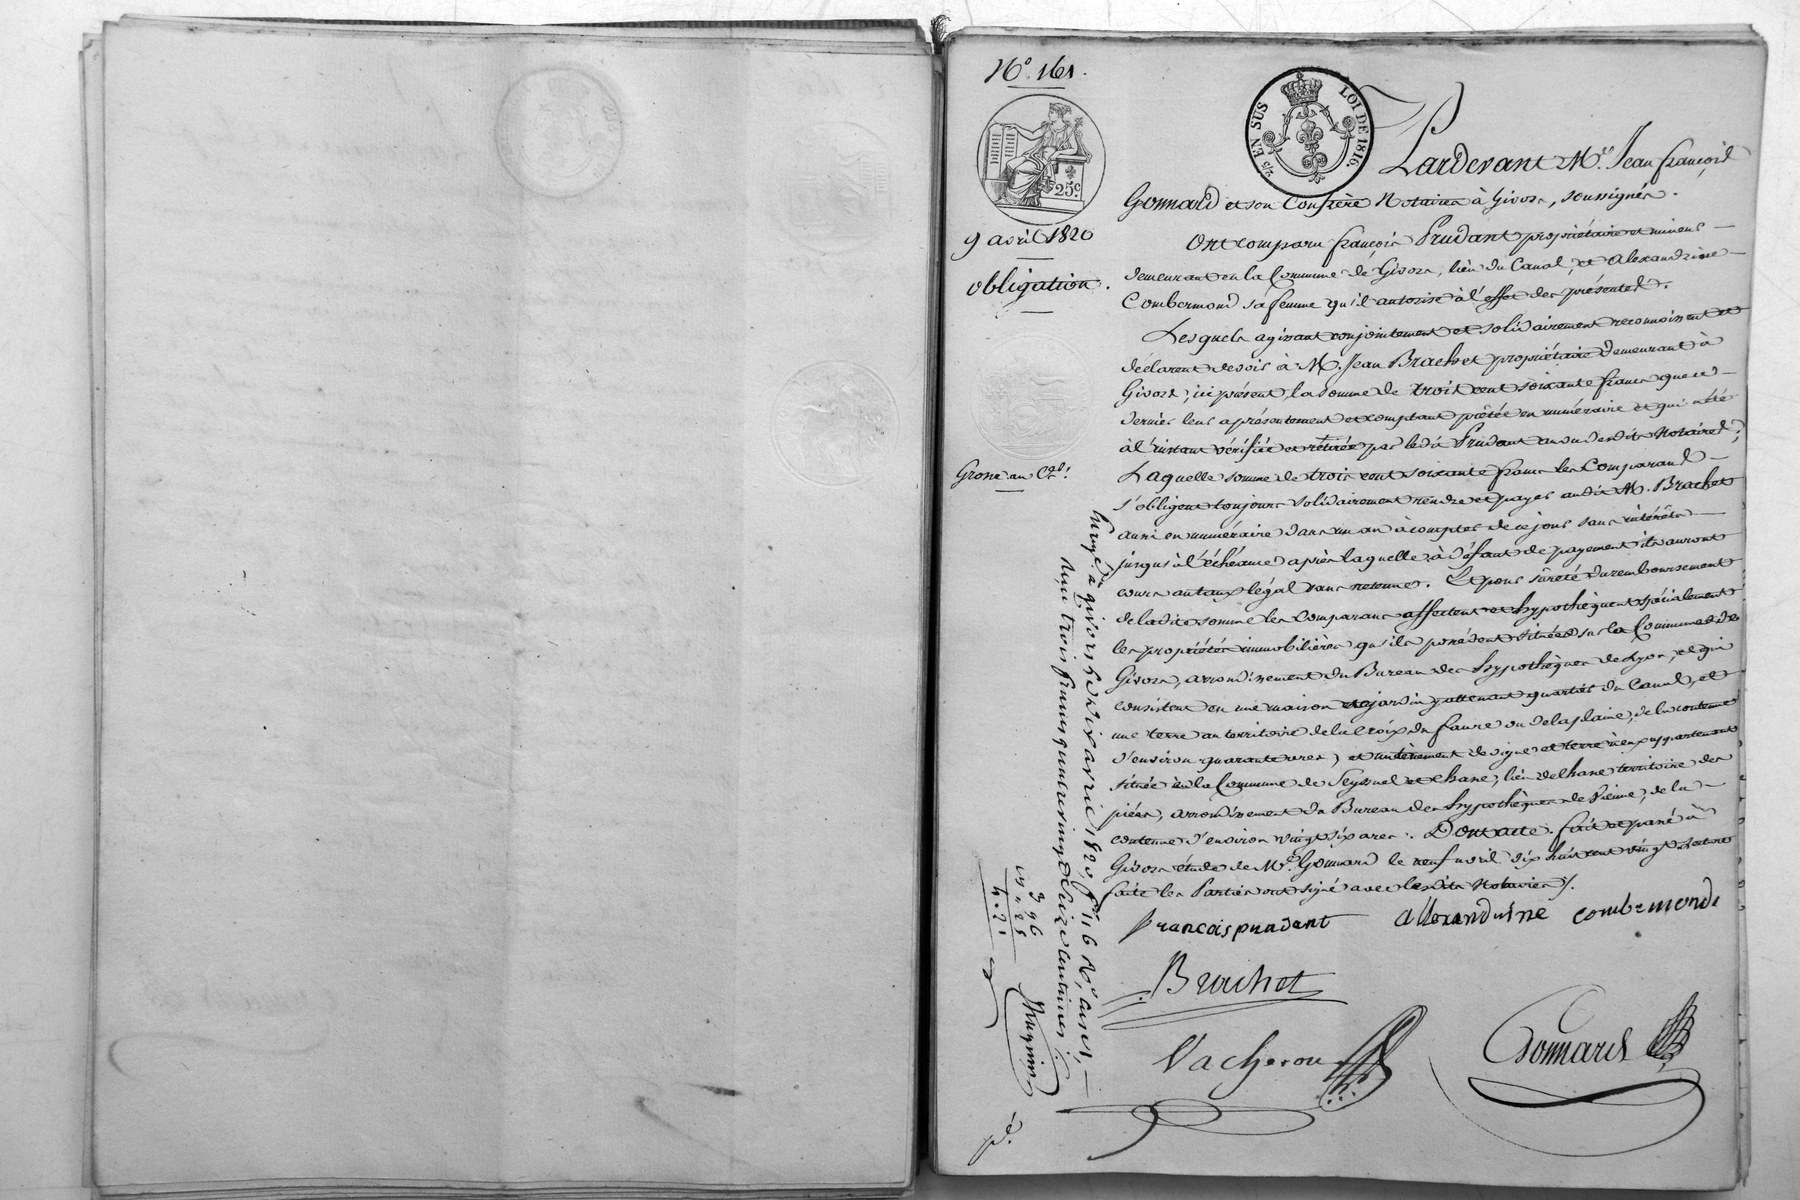 N.o 161.
2/5 EN SUS
LOI DE 1816.
25c
9 avril 1820
obligation.
Grosse au C.er
Pardevant M.e Jean françois
Gonnard et son Confrère Notaires à Givors, soussignés.
Ont comparu françois Prudant propriétaire et
demeurant en la Commune de Givors, lieu du Canal, et Alexandrine
Combermond sa femme qu'il autorise à l'effet des présentes.
Lesquels agissant conjointement et solidairement reconnoissent et
déclarent devoir à M. Jean Brachet propriétaire demeurant à
Givors, ici présent, la somme de trois cent soixante francs que ce
dernier leur a présentement et comptant prêtée en numéraire et qui a été
à l'instant vérifiée et retirée par ledit Prudant au vu desdits Notaires;
Laquelle somme de trois cent soixante francs les Comparans
s'obligent toujours solidairement rendre et payer audit M. Brachet
aussi en numéraire dans un an à compter de ce jour sans intérêts
jusqu'à l'échéance après laquelle à défaut de payement ils auront
cours au taux légal sans retenue. Et pour sûreté du remboursement
de ladite somme les Comparans affectent et hypothèquent spécialement
les propriétés immobilières qu'ils possèdent situées sur la Commune de
Givors, arrondissement du Bureau des hypothèques de Lyon, et qui
consistent en une maison et jardin y attenant quartier du Canal, et
une terre au territoire de la Croix du faure ou de la plaine, de la contenue
d'environ quarante ares, et un tènement de vigne et terre à eux appartenant
située en la Commune de Seyssuel et Chane, lieu de Chane territoire des
piéer, arrondissement du Bureau des hypothèques de Vienne, de la
contenue d'environ vingt six ares. Dont acte. fait et passé à
Givors étude de M.e Gonnard le neuf avril dix huit cent vingt et lecture
faite les Parties ont signé avec lesdits Notaires ./.
françois prudant allexandrine combermond
Brachet
Vacheron Gonnard
Enregé. à givors le dix avril 1820, f.o 116 r.o, cases,
reçu trois francs quatre vingt seize centimes
3 96
4.21